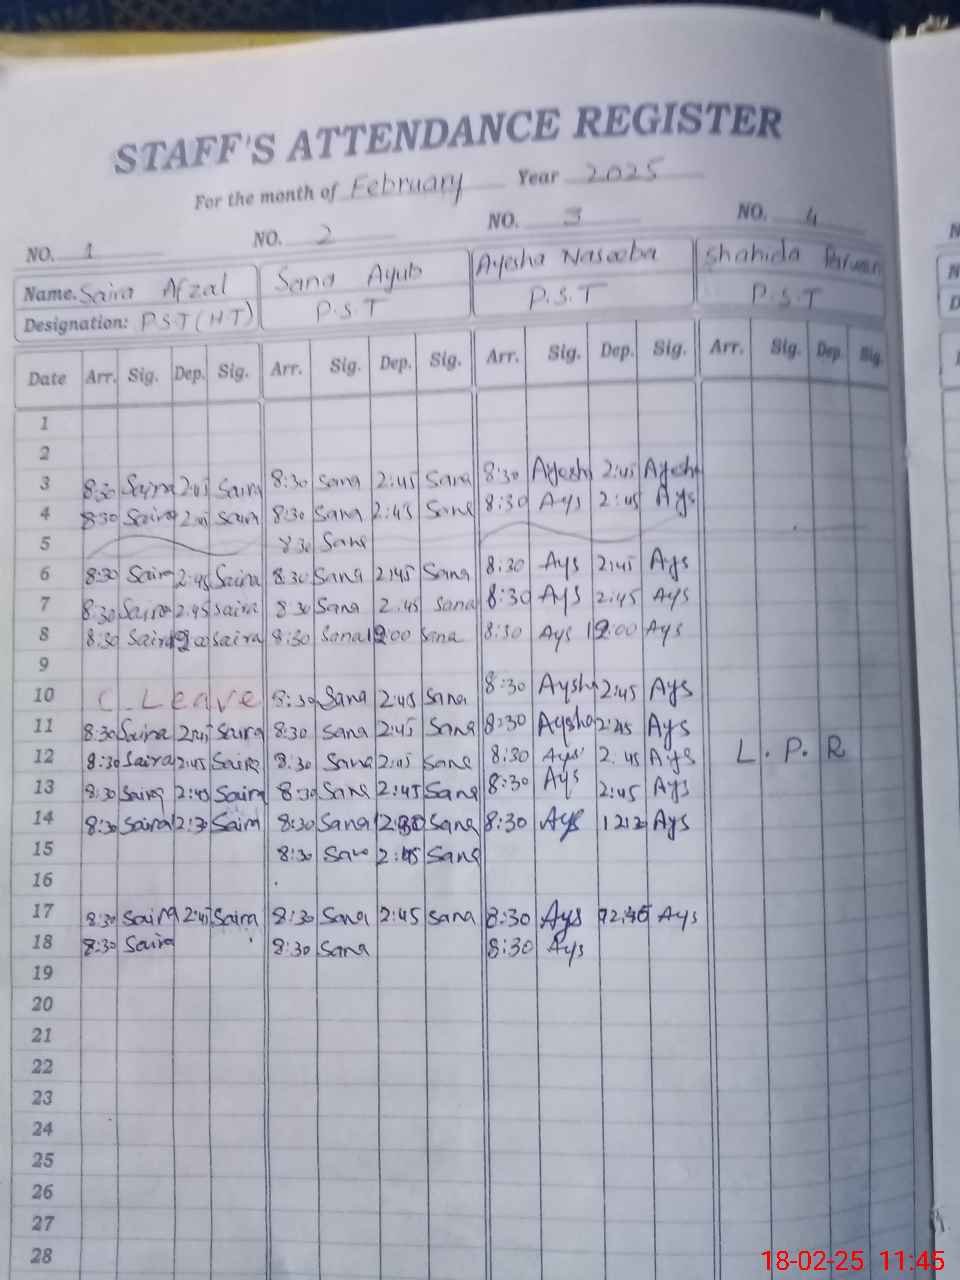 STAFF'S ATTENDANCE REGISTER
For the month of February Year 2025
NO. 1 NO. 2 NO. 3 NO. 4
Name. Saira Afzal Sana Ayub Ayesha Naseeba Shahida
Designation: P.S.T (H T) P.S.T P.S.T P.S.T
Date Arr. Sig. Dep. Sig. Arr. Sig. Dep. Sig. Arr. Sig. Dep. Sig. Arr. Sig. Dep. Sig.
1
2
3 8:30 Saira Saira 8:30 Sana 2:45 Sana 8:30 Ayesh 2:45 Ayesh
4 8:30 Saira Saira 8:30 Sana 2:45 Sana 8:30 Ays 2:45 Ays
5 8:30 Sana
6 8:30 Saira 2:45 Saira 8:30 Sana 2:45 Sana 8:30 Ays 2:45 Ays
7 8:30 Saira 2:45 Saira 8:30 Sana 2:45 Sana 8:30 Ays 2:45 Ays
8 8:30 Saira Saira 8:30 Sana 12:00 Sana 8:30 Ays 12:00 Ays
9
10 C. Leave 8:30 Sana 2:45 Sana 8:30 Aysha 2:45 Ays
11 8:30 Saira 2:45 Saira 8:30 Sana 2:45 Sana 8:30 Aysha 2:45 Ays
12 8:30 Saira 2:45 Saira 8:30 Sana 2:45 Sana 8:30 Ays 2.45 Ays L.P.R
13 8:30 Saira 2:45 Saira 8:30 Sana 2:45 Sana 8:30 Ays 2:45 Ays
14 8:30 Saira 12:30 Saira 8:30 Sana 12:30 Sana 8:30 Ays Ays
15 8:30 Sana 2:45 Sana
16
17 8:30 Saira 2:45 Saira 8:30 Sana 2:45 Sana 8:30 Ays Ays
18 8:30 Saira 8:30 Sana 8:30 Ays
19
20
21
22
23
24
25
26
27
28
18-02-25 11:45